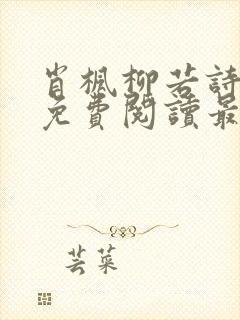 肖楓柳若詩
免費閱讀最
芸菜